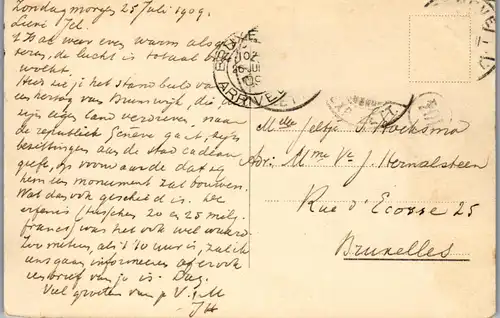 Zondag morgen 25 Juli 1909.
Lieve Jel.
't Zal weer even warm als gis-
teren, de lucht is totaal be
wolkt.
Hier zie je het standbeeld van
een hertog van Brunswijk, die
zijn eigen land verdreven, naar
de republiek Genève gaat, zijn
bezittingen aan de stad cadeau
geeft, op voorwaarde dat zij
hem een monument zal bouwen.
Wat dan ook geschied is. De
erfenis (tusschen 20 en 25 mill.
francs) was het ook wel waard.
Zoo meteen, als 't 10 uur is, zal ik
ons gaan informeeren of er ook
een brief van je is. Dag.
Veel groeten van p V. & M
BRUXE
26 JUI
ARRIVEE
Mlle Jeltje S. Hoeksma
Adr. Mme Ve J. Hernalsteen
Rue d'Ecosse 25
Bruxelles